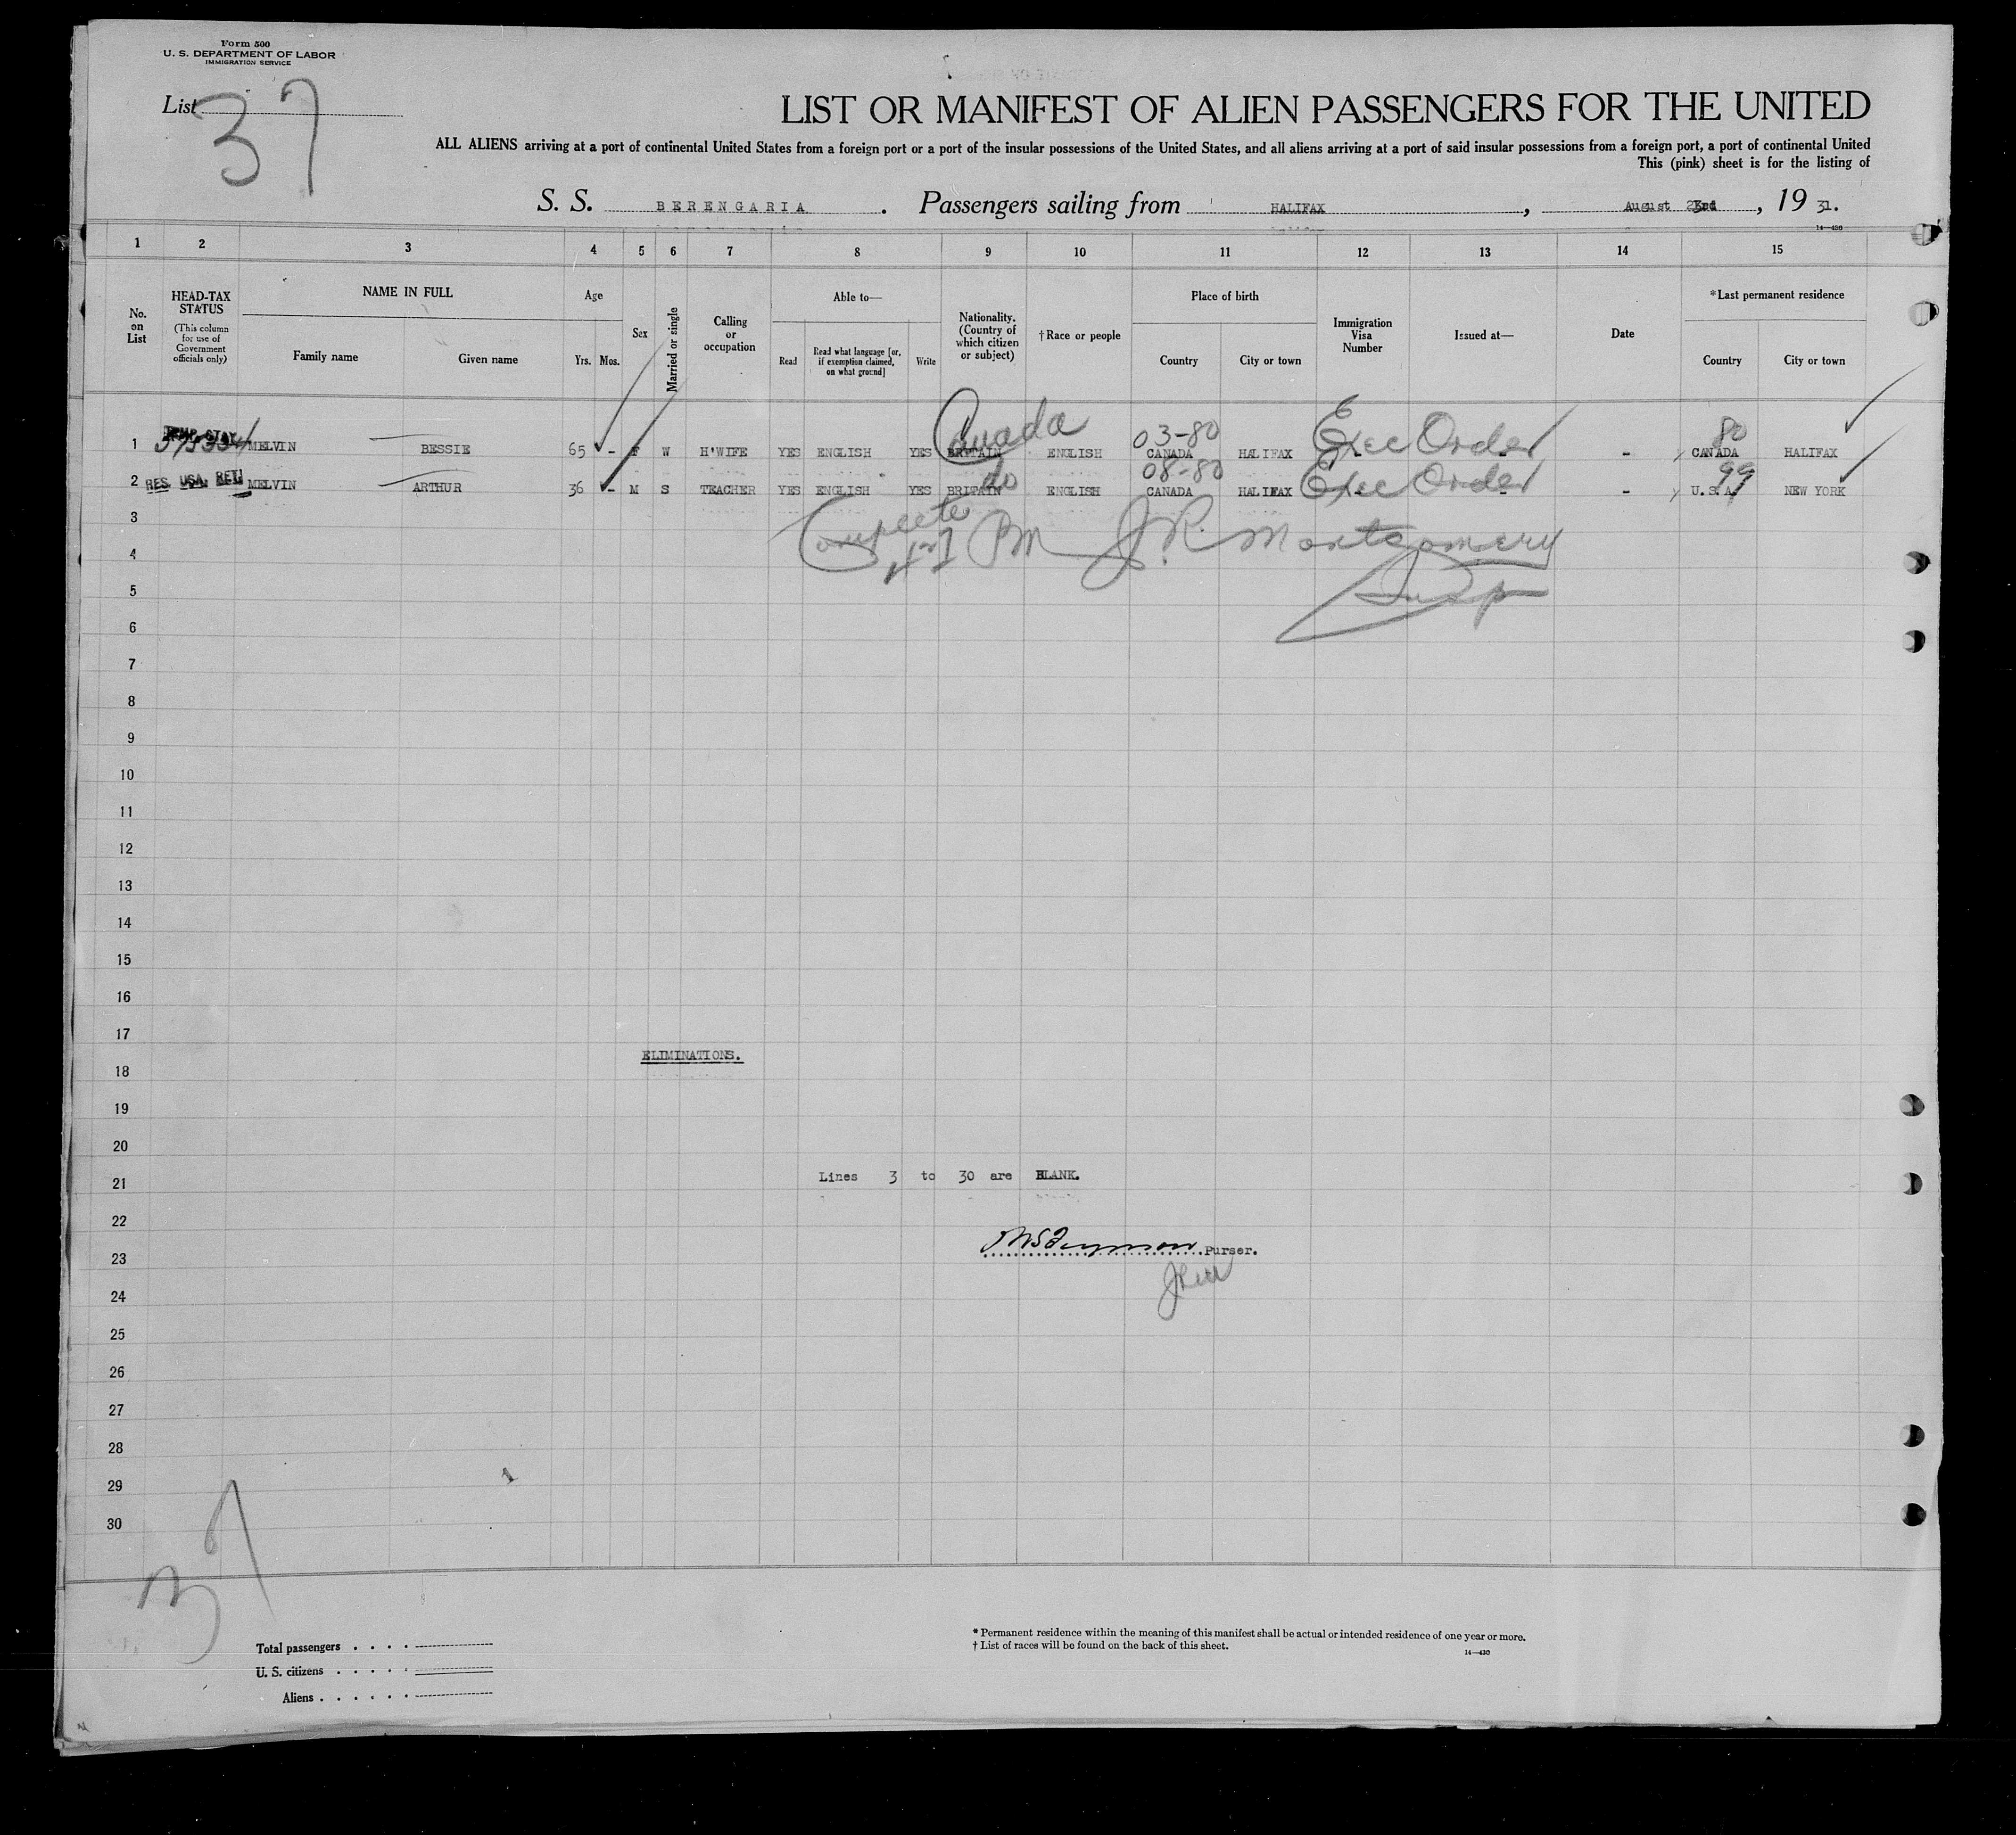 Form 500
U. S. DEPARTMENT OF LABOR
IMMIGRATION SERVICE
List 37
LIST OR MANIFEST OF ALIEN PASSENGERS FOR THE UNITED
ALL ALIENS arriving at a port of continental United States from a foreign port or a port of the insular possessions of the United States, and all aliens arriving at a port of said insular possessions from a foreign port, a port of continental United
This (pink) sheet is for the listing of
S. S. BERENGARIA. Passengers sailing from HALIFAX, August, 19 31.
14—430
1 2 3 4 5 6 7 8 9 10 11 12 13 14 15
No. on List
HEAD-TAX STATUS
(This column for use of Government officials only)
NAME IN FULL
Family name
Given name
Age
Yrs. Mos.
Sex
Married or single
Calling or occupation
Able to—
Read
Read what language [or, if exemption claimed, on what ground]
Write
Nationality. (Country of which citizen or subject)
†Race or people
Place of birth
Country
City or town
Immigration Visa Number
Issued at—
Date
*Last permanent residence
Country
City or town
Canada 03-80 Exec Order 80
1 TEMP STAY MELVIN BESSIE 65 - F W H'WIFE YES ENGLISH YES BRITAIN ENGLISH CANADA HALIFAX - - - CANADA HALIFAX
do 08-80 Exec Order 99
2 RES. USA. RET. MELVIN ARTHUR 36 - M S TEACHER YES ENGLISH YES BRITAIN ENGLISH CANADA HALIFAX - - - U.S.A. NEW YORK
3
Complete PM J.R. Montgomery
4
Insp
5
6
7
8
9
10
11
12
13
14
15
16
17
ELIMINATIONS.
18
19
20
21 Lines 3 to 30 are BLANK.
22
23 Purser.
24
25
26
27
28
29
30
37
Total passengers . . . .
U. S. citizens . . . . .
Aliens . . . . . .
* Permanent residence within the meaning of this manifest shall be actual or intended residence of one year or more.
† List of races will be found on the back of this sheet.
14—430